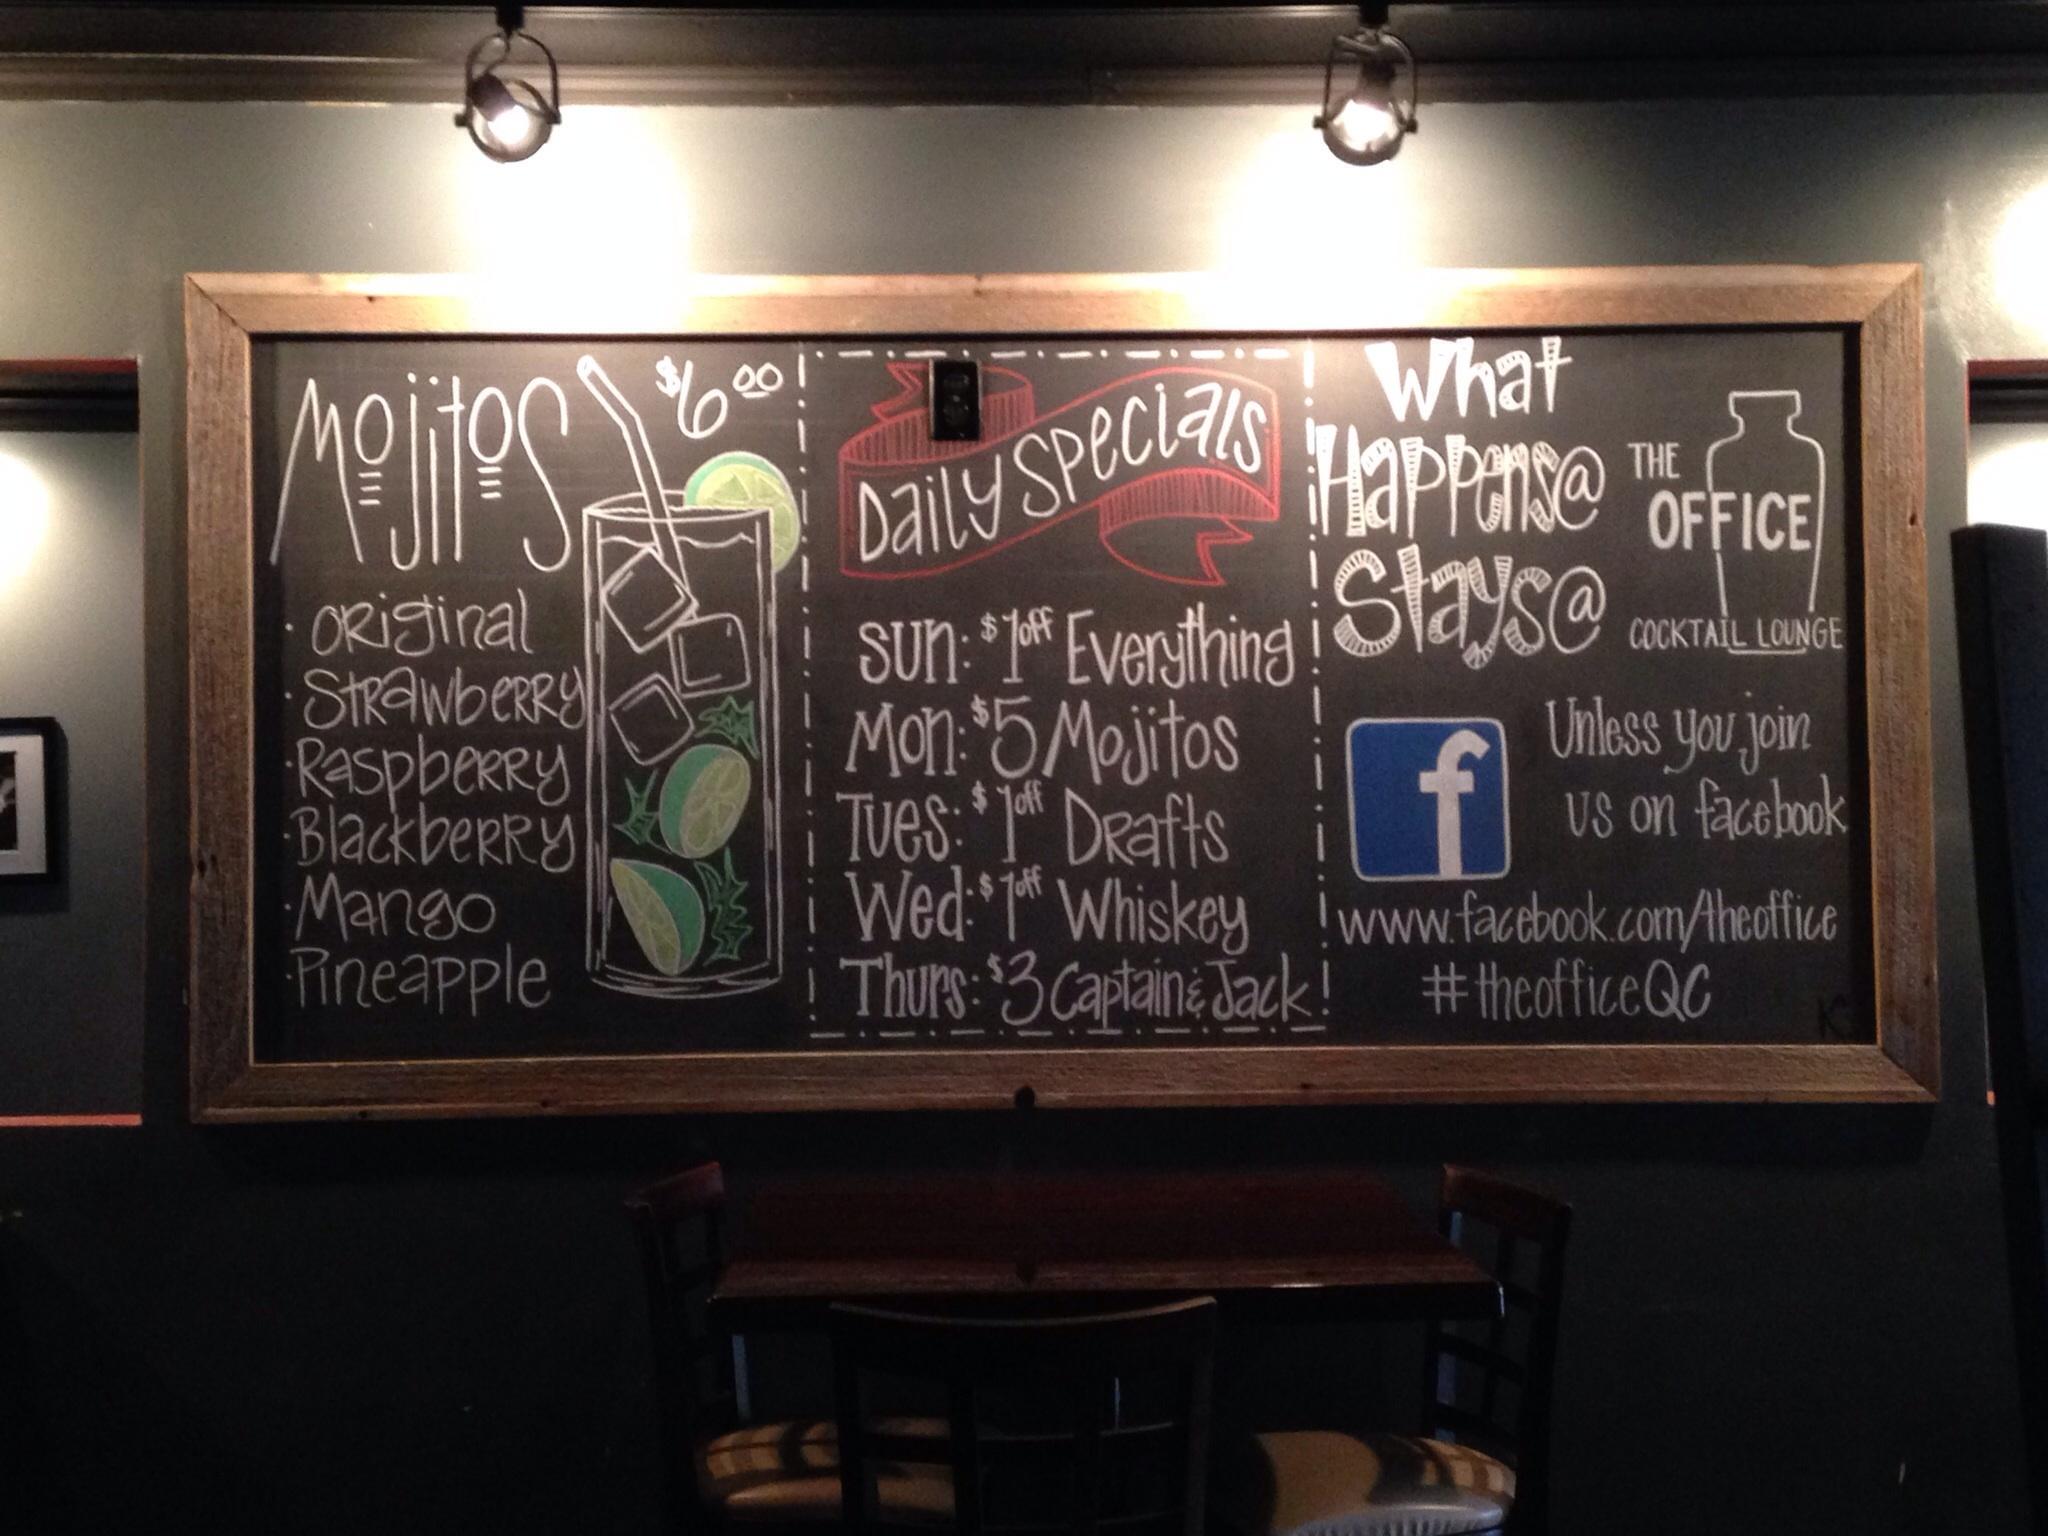 Mojitos $6.00
· Original
· Strawberry
· Raspberry
· Blackberry
· Mango
· Pineapple
Daily Specials
Sun: $1off Everything
Mon: $5 Mojitos
Tues: $1off Drafts
Wed: $1off Whiskey
Thurs: $3 Captain & Jack
What
Happens@
Stays@
THE
OFFICE
COCKTAIL LOUNGE
f
Unless you join
us on facebook
www.facebook.com/theoffice
#theofficeQC
KC